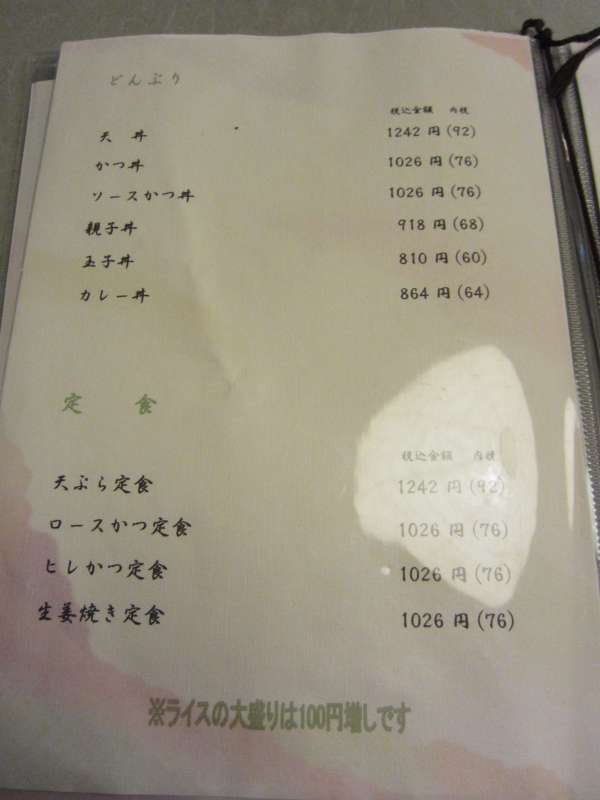 どんぶり
税込金額 内税
天 丼 1242 円 (92)
かつ丼 1026 円 (76)
ソースかつ丼 1026 円 (76)
親子丼 918 円 (68)
玉子丼 810 円 (60)
カレー丼 864 円 (64)
定 食
税込金額 内税
天ぷら定食 1242 円 (92)
ロースかつ定食 1026 円 (76)
ヒレかつ定食 1026 円 (76)
生姜焼き定食 1026 円 (76)
※ライスの大盛りは100円増しです